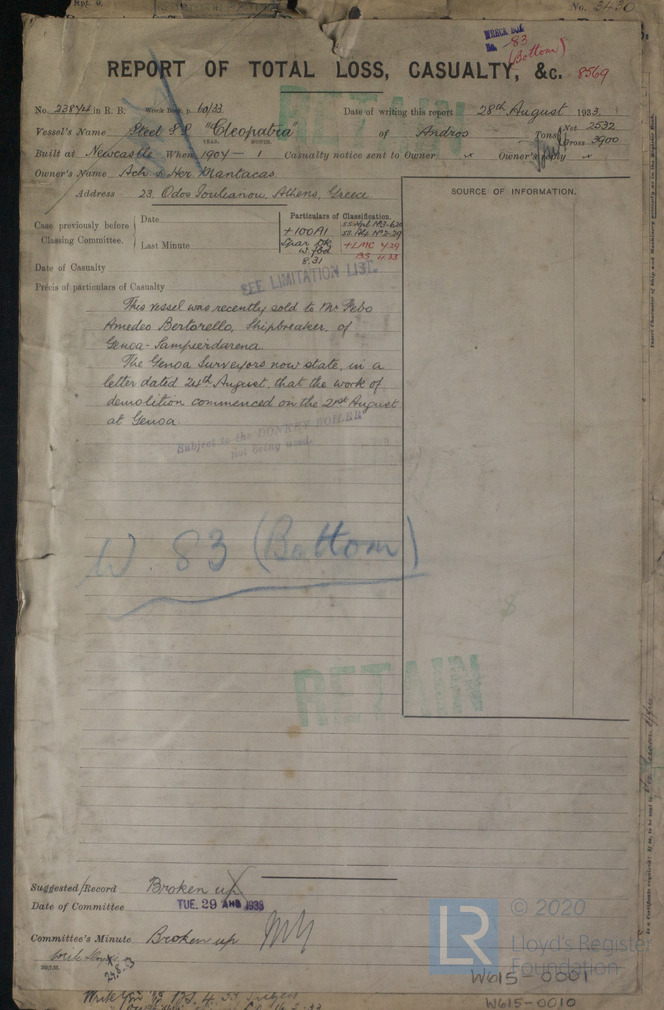 No. 3430
WRECK BOX
No. 83
(Bottom)
REPORT OF TOTAL LOSS, CASUALTY, &c. 8569
RETAIN
No. 23874 in R. B. Wreck Book, p. 60/33 Date of writing this report 28th August 1933.
Vessel's Name Steel S.S. "Cleopatria" of Andros Tons Net 2532 Gross 3900
YEAR. MONTH.
Built at Newcastle When 1904 - 1 Casualty notice sent to Owner x Owner's reply x
Owner's Name Ach. & Her. Mantacas
Address 23, OdosIoulianou, Athens, Greece
SOURCE OF INFORMATION.
Case previously before Classing Committee.
Date
Last Minute
Particulars of Classification.
+100A1
Spar Dk
8.31
+LMC 4.29
BS 4.33
Date of Casualty
SEE LIMITATION LIST.
Précis of particulars of Casualty
This vessel was recently sold to Mr. Febo
Amedeo Bertorello, Shipbreaker of
Genoa-Sampierdarena.
The Genoa Surveyors now state, in a
letter dated 24th August, that the work of
demolition commenced on the 21st August
at Genoa
Subject to the DONKEY BOILER
not being used
W. 83 (Bottom)
RETAIN
Suggested Record Broken up
Date of Committee TUE. 29 AUG 1933
Committee's Minute Broken up
© 2020
LR
Lloyd's Register
Foundation
W615-0001
W615-0010